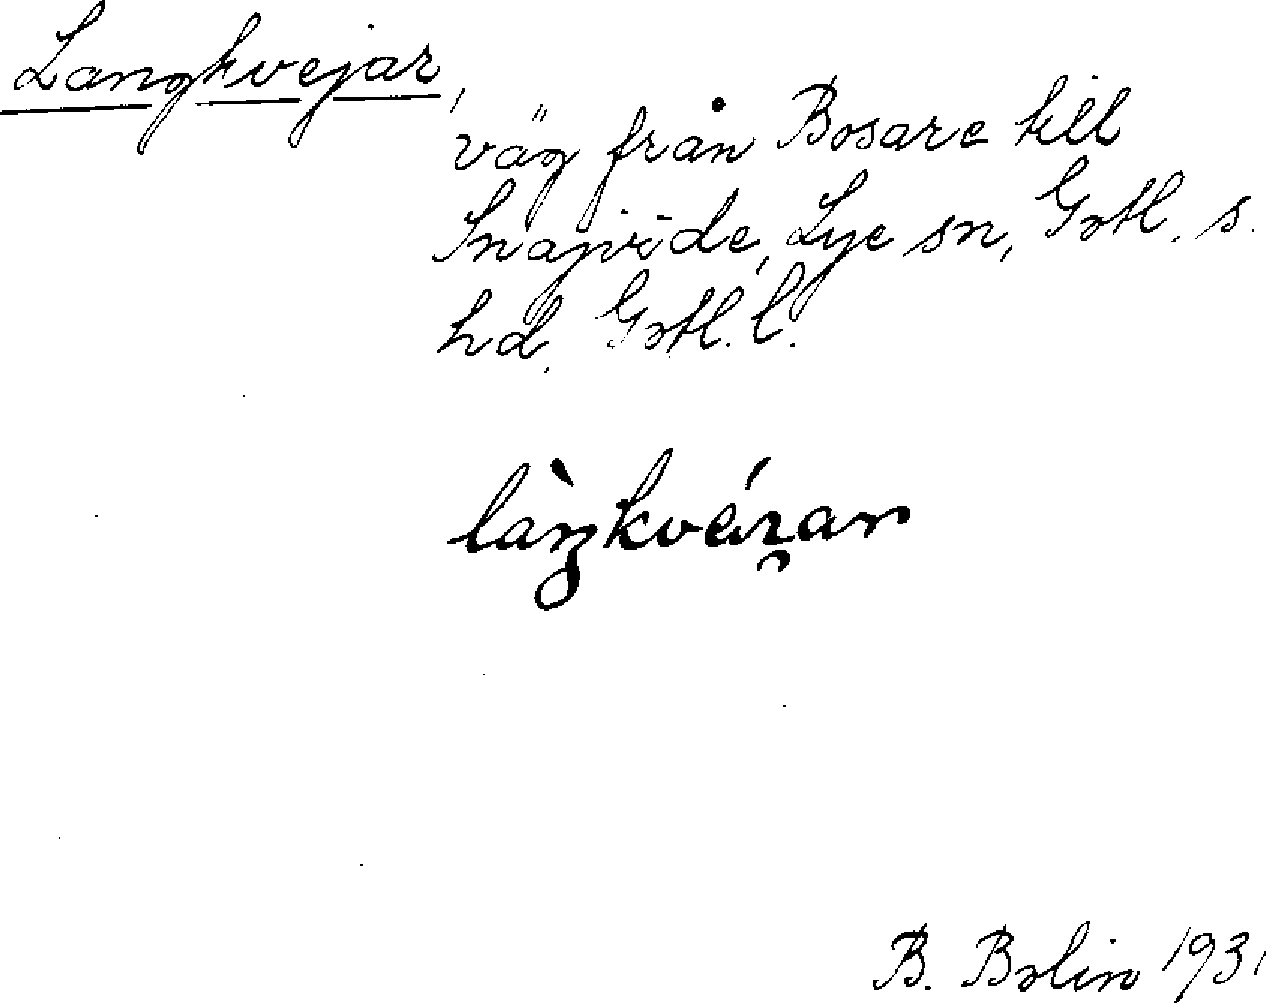 Langkvejar,
väg från Bosare till
Snajvide, Lye sn, Gotl. s.
hd, Gotl. l.
B. Bolin 1931